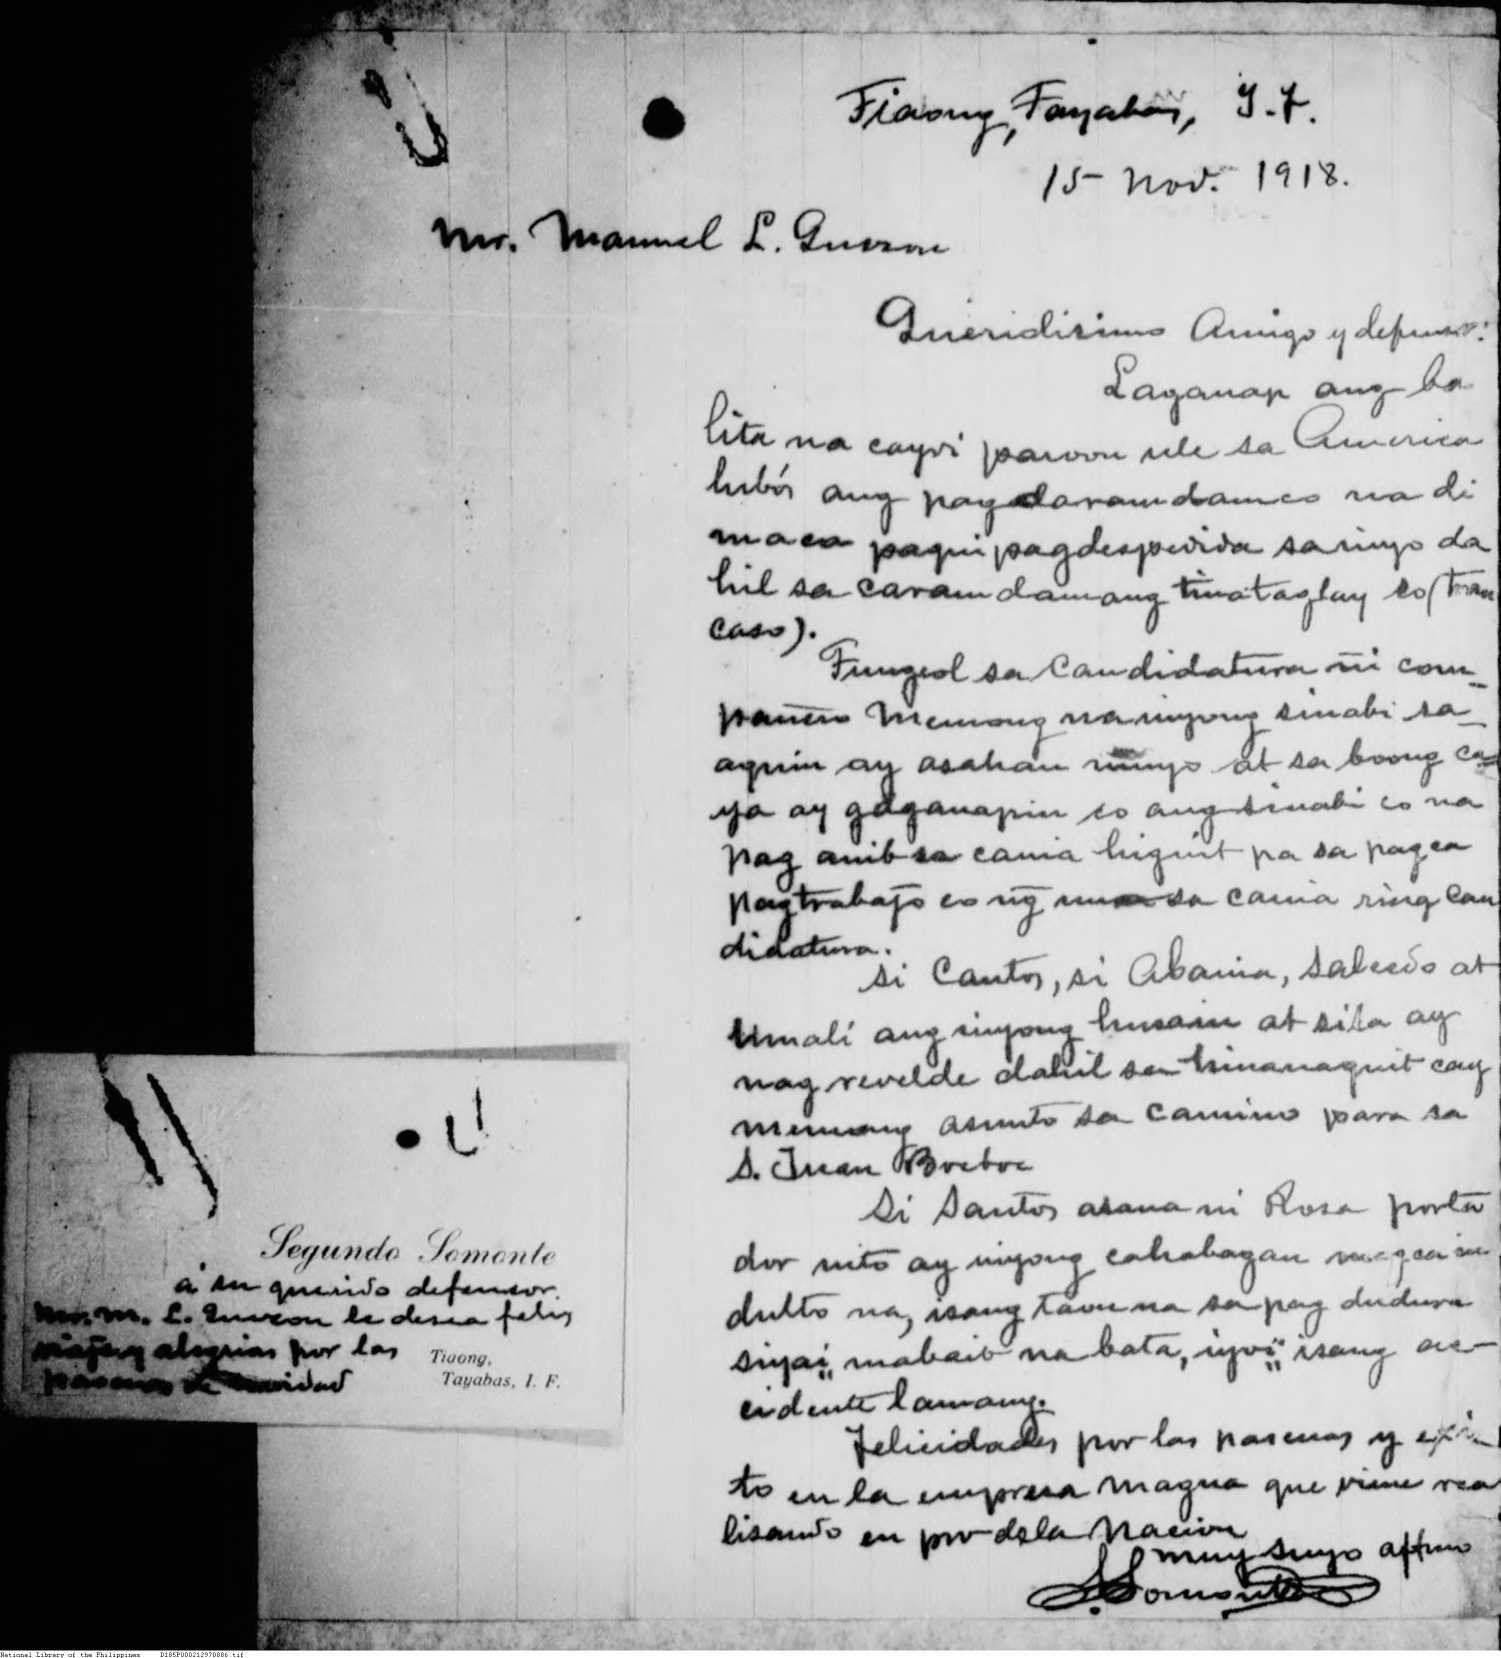 Tiaong, Tayabas, I. F.
15 Nov. 1918.
Mr. Manuel L. Quezon
Queridisimo Amigo y defensor:
Laganap ang ba
lita na cayo'i paroon ule sa America
lubós ang pagdaramdam co na di
maca paquipagdespedida sa inyo da
hil sa caramdamang tinataglay co (tran
caso).
Tungcol sa Candidatura ni com_
pañero Memong na inyong sinabi sa_
aquin ay asahan ninyo at sa boong ca
ya ay gaganapin co ang sinabi co na
pag anib sa cania higuit pa sa pagca
pagtrabajo co ng sa cania ring can
didatura.
Si Cantos, si Abania, Salcedo at
Umali ang inyong husain at sila ay
nag revelde dahil sa hinanaquit cay
memong asunto sa camino para sa
S. Juan Bocboc
Si Santos asana ni Rosa porta
dor nito ay inyong cahabagan
dulto na, isang tauo na sa pag dudusa
siyai, mabait na bata, iyo'i isang ac-
cidente lamang.
Felicidades por las pascuas y exi
to en la empresa magna que viene rea
lisando en pro de la Nacion
muy suyo affmo
S. Somonte
Segundo Somonte
á su querido defensor.
Mr. M. L. Quezon le desea feliz
viaje y alegrias por las
pascuas de navidad
Tiaong,
Tayabas, I. F.
National Library of the Philippines D185P000212970886.tif